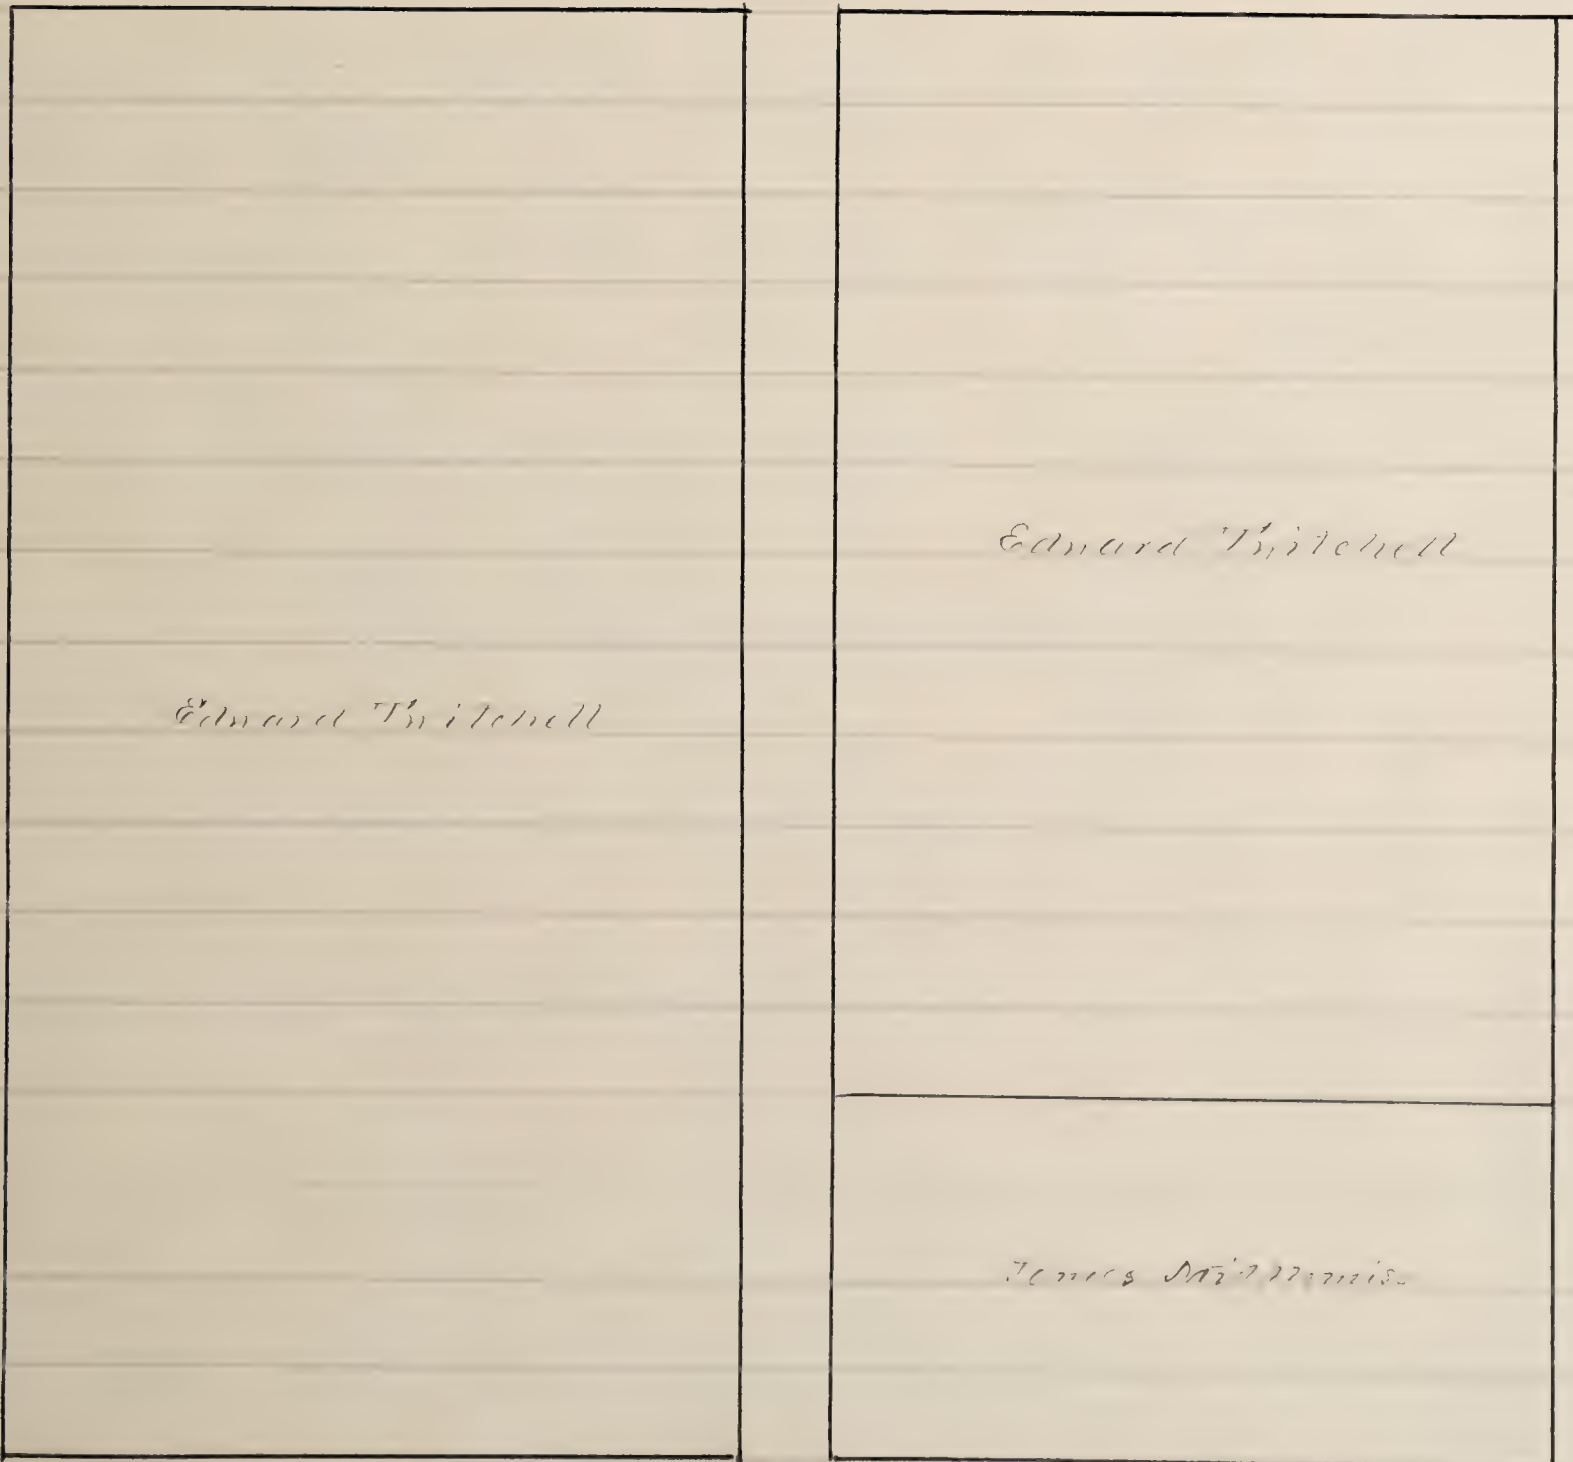 Edward Twitchell
Edward Twitchell
James